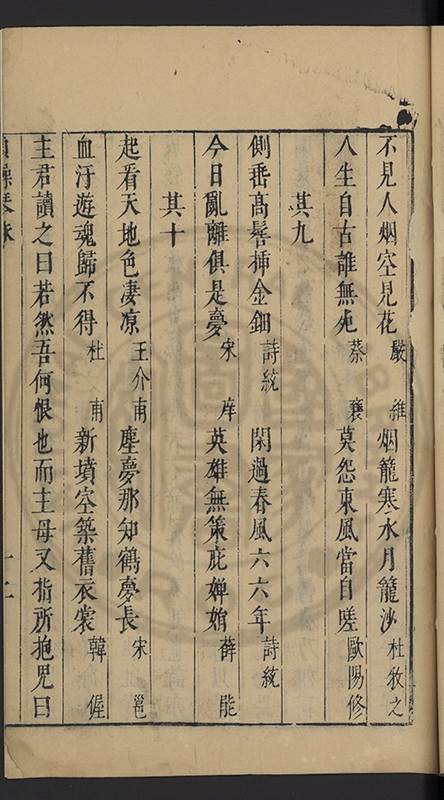 不見人烟空見花嚴維烟籠寒水月籠沙杜牧之
人生自古誰無死蔡襄莫怨東風當自嗟歐陽修
其九
側垂高髻挿金鈿詩統閑過春風六六年詩統
今日亂離俱是夢宋庠英雄無策庇嬋娟薛能
其十
起看天地色凄凉王介甫塵夢那知鶴夢長宋邕
血汙遊魂歸不得杜甫新墳空築舊衣裳韓偓
主君讀之曰若然吾何恨也而主母又指所抱児曰